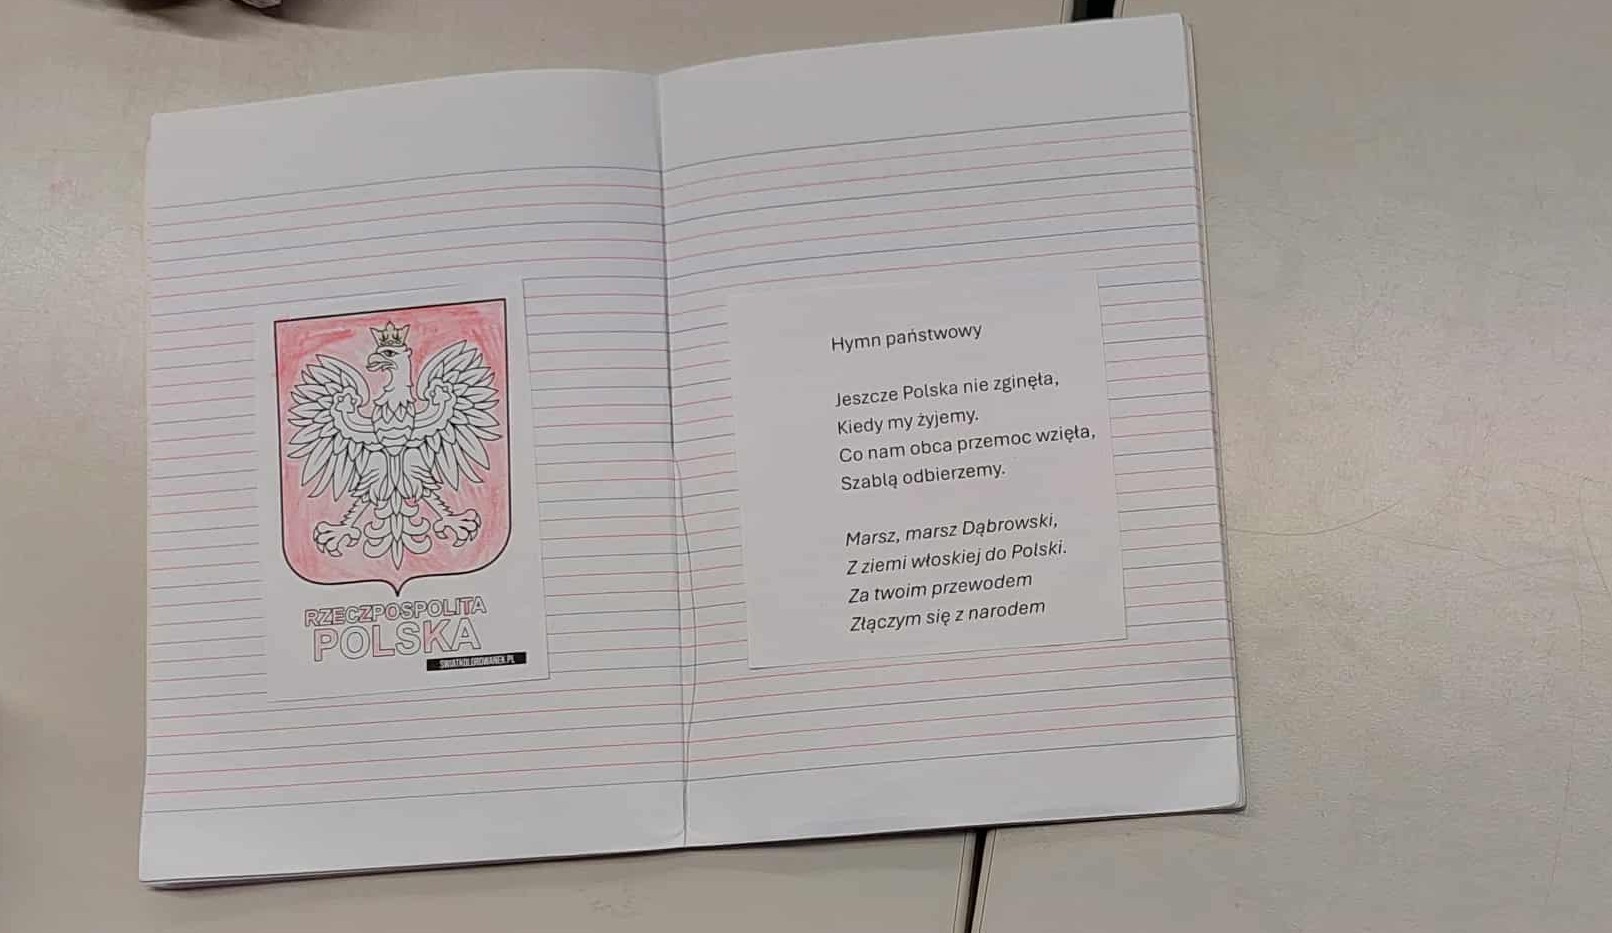 RZECZPOSPOLITA
POLSKA
SWIATKOLOROWANEK.PL
Hymn państwowy
Jeszcze Polska nie zginęła,
Kiedy my żyjemy.
Co nam obca przemoc wzięła,
Szablą odbierzemy.
Marsz, marsz Dąbrowski,
Z ziemi włoskiej do Polski.
Za twoim przewodem
Złączym się z narodem